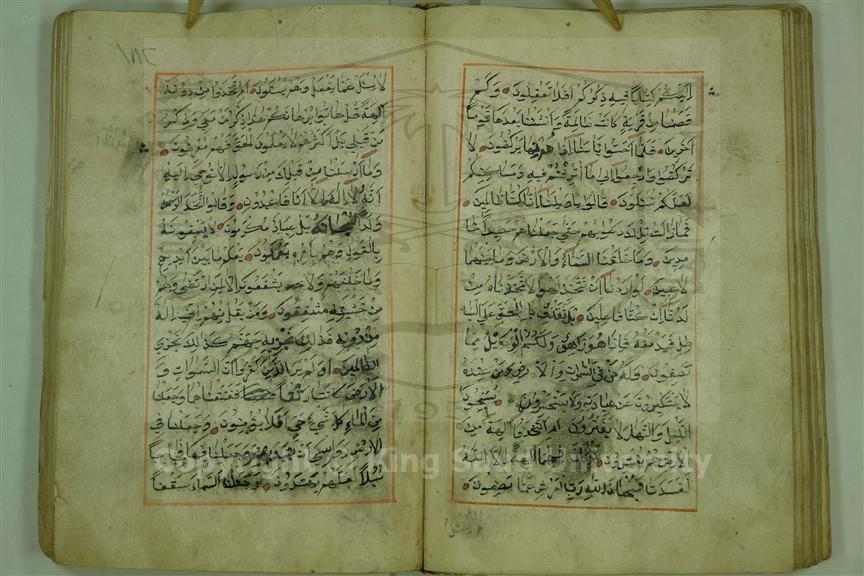 اليكم كتابا فيه ذكركم افلا تعقلون وكم
قصمنا من قرية كانت ظالمة وانشأنا بعدها قوما
آخرين فلما احسوا بأسنا اذا هم منها يركضون لا
تركضوا وارجعوا الى ما اترفتم فيه ومساكنكم
لعلكم تسئلون قالوا يا ويلنا انا كنا ظالمين
فما زالت تلك دعويهم حتى جعلناهم حصيدا خا
مدين وما خلقنا السماء والارض وما بينهما
لاعبين لو اردنا ان نتخذ لهوا لاتخذناه من
لدنا ان كنا فاعلين بل نقذف بالحق على البا
طل فيدمغه فاذا هو زاهق ولكم الويل مما
تصفون وله من في السموات والارض ومن عنده
لا يستكبرون عن عبادته ولا يستحسرون يسبحون
الليل والنهار لا يفترون ام اتخذوا آلهة من
الارض هم ينشرون لو كان فيهما آلهة الا الله
لفسدتا فسبحان الله رب العرش عما يصفون
لا يسئل عما يفعل وهم يسئلون ام اتخذوا من دونه
آلهة قل هاتوا برهانكم هذا ذكر من معي وذكر
من قبلي بل اكثرهم لا يعلمون الحق فهم معرضون
وما ارسلنا من قبلك من رسول الا نوحي اليه
انه لا اله الا انا فاعبدون وقالوا اتخذ الرحمن
ولدا سبحانه بل عباد مكرمون لا يسبقونه
بالقول وهم بامره يعملون يعلم ما بين ايديهم
وما خلفهم ولا يشفعون الا لمن ارتضى وهم
من خشيته مشفقون ومن يقل منهم اني اله
من دونه فذلك نجزيه جهنم كذلك نجزي
الظالمين اولم ير الذين كفروا ان السموات و
الارض كانتا رتقا ففتقناهما وجعلنا
من الماء كل شيء حي افلا يؤمنون وجعلنا في
الارض رواسي ان تميد بهم وجعلنا فيها فجاجا
سبلا لعلهم يهتدون وجعلنا السماء سقفا
Copyright © King Saud University